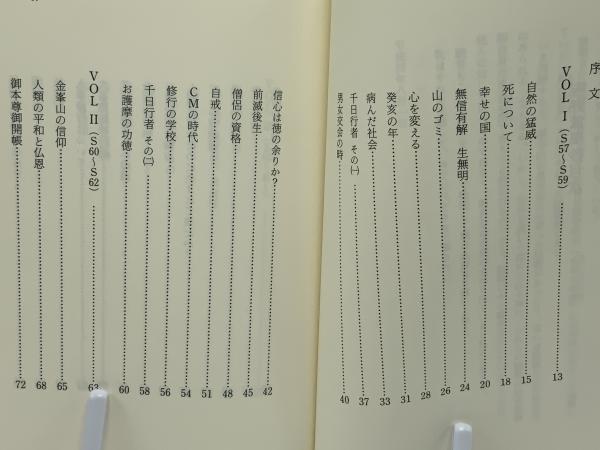 序文
VOL Ⅰ(S57〜S59)……13
自然の猛威……15
死について……18
幸せの国……20
無信有解 生無明……24
山のゴミ……26
心を変える……28
癸亥の年……31
病んだ社会……33
千日行者 その㈠……37
男女交会の時……40
信心は徳の余りか?……42
前滅後生……45
僧侶の資格……48
自戒……51
CMの時代……54
修行の学校……56
千日行者 その㈡……58
お護摩の功徳……60
VOL Ⅱ(S60〜S62)……63
金峯山の信仰……65
人類の平和と仏恩……68
御本尊御開帳……72